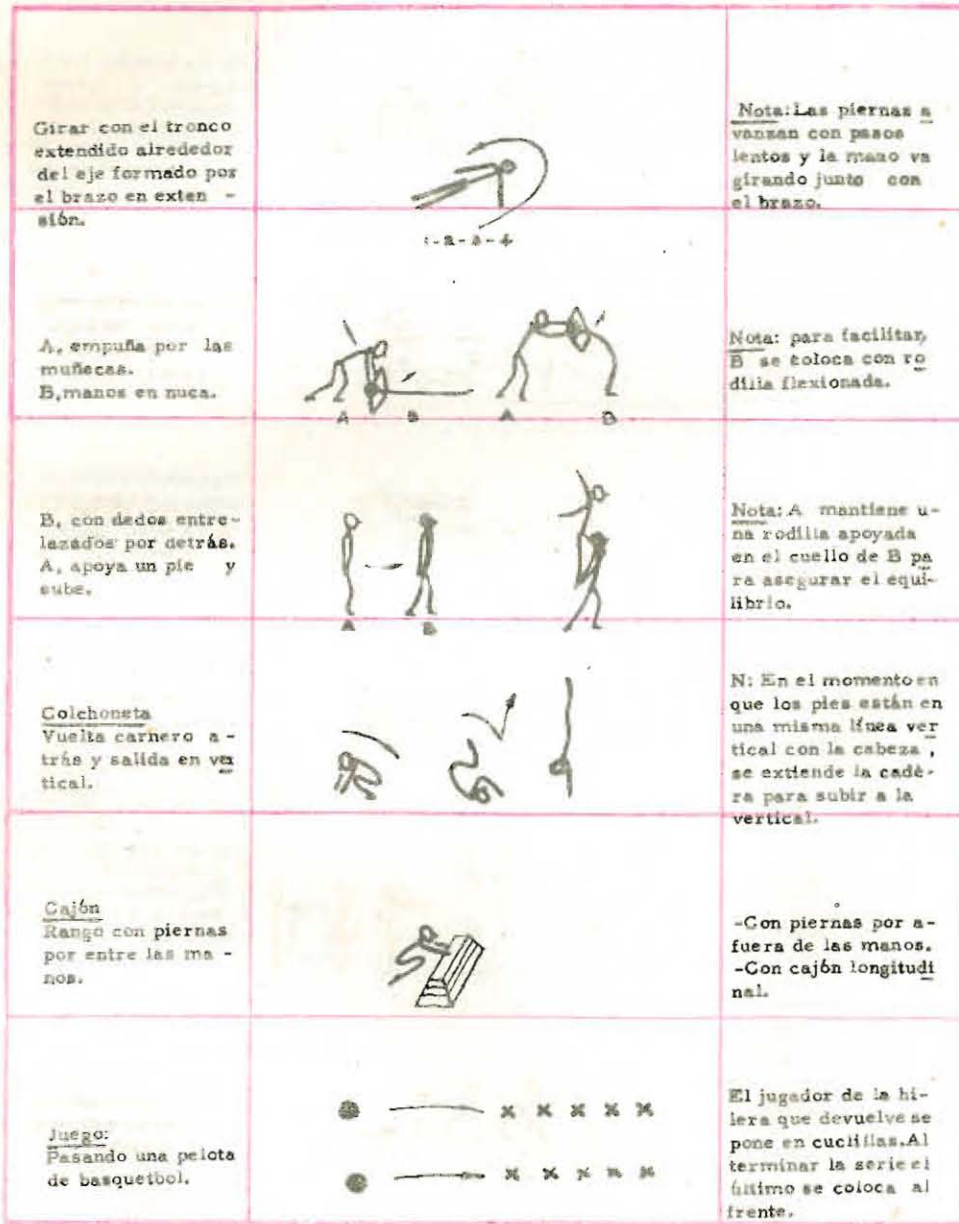 Girar con el tronco
extendido alrededor
del eje formado por
el brazo en exten -
sión.
1 - 2 - 3 - 4
Nota: Las piernas a
vanzan con pasos
lentos y la mano va
girando junto con
el brazo.
A, empuña por las
muñecas.
B, manos en nuca.
A B A B
Nota: para facilitar,
B se coloca con ro
dilla flexionada.
B, con dedos entre-
lazados por detrás.
A, apoya un pie y
sube.
A B
Nota: A mantiene u-
na rodilla apoyada
en el cuello de B pa
ra asegurar el equi-
librio.
Colchoneta
Vuelta carnero a -
trás y salida en ver
tical.
N: En el momento en
que los pies están en
una misma línea ver
tical con la cabeza ,
se extiende la cade-
ra para subir a la
vertical.
Cajón
Rango con piernas
por entre las ma -
nos.
-Con piernas por a-
fuera de las manos.
-Con cajón longitudi
nal.
Juego:
Pasando una pelota
de basquetbol.
x x x x x
x x x x x
El jugador de la hi-
lera que devuelve se
pone en cuclillas. Al
terminar la serie el
último se coloca al
frente.